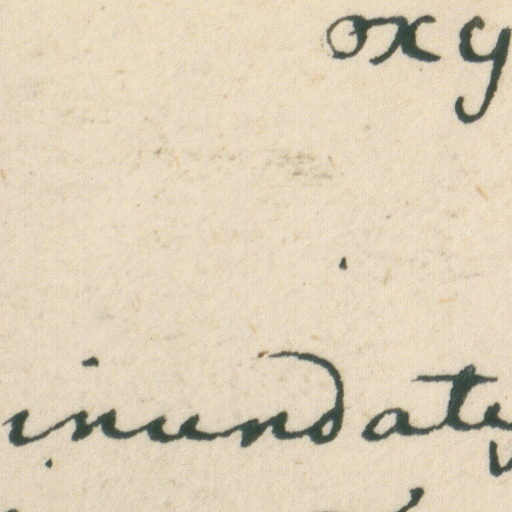 oxy
inundaty